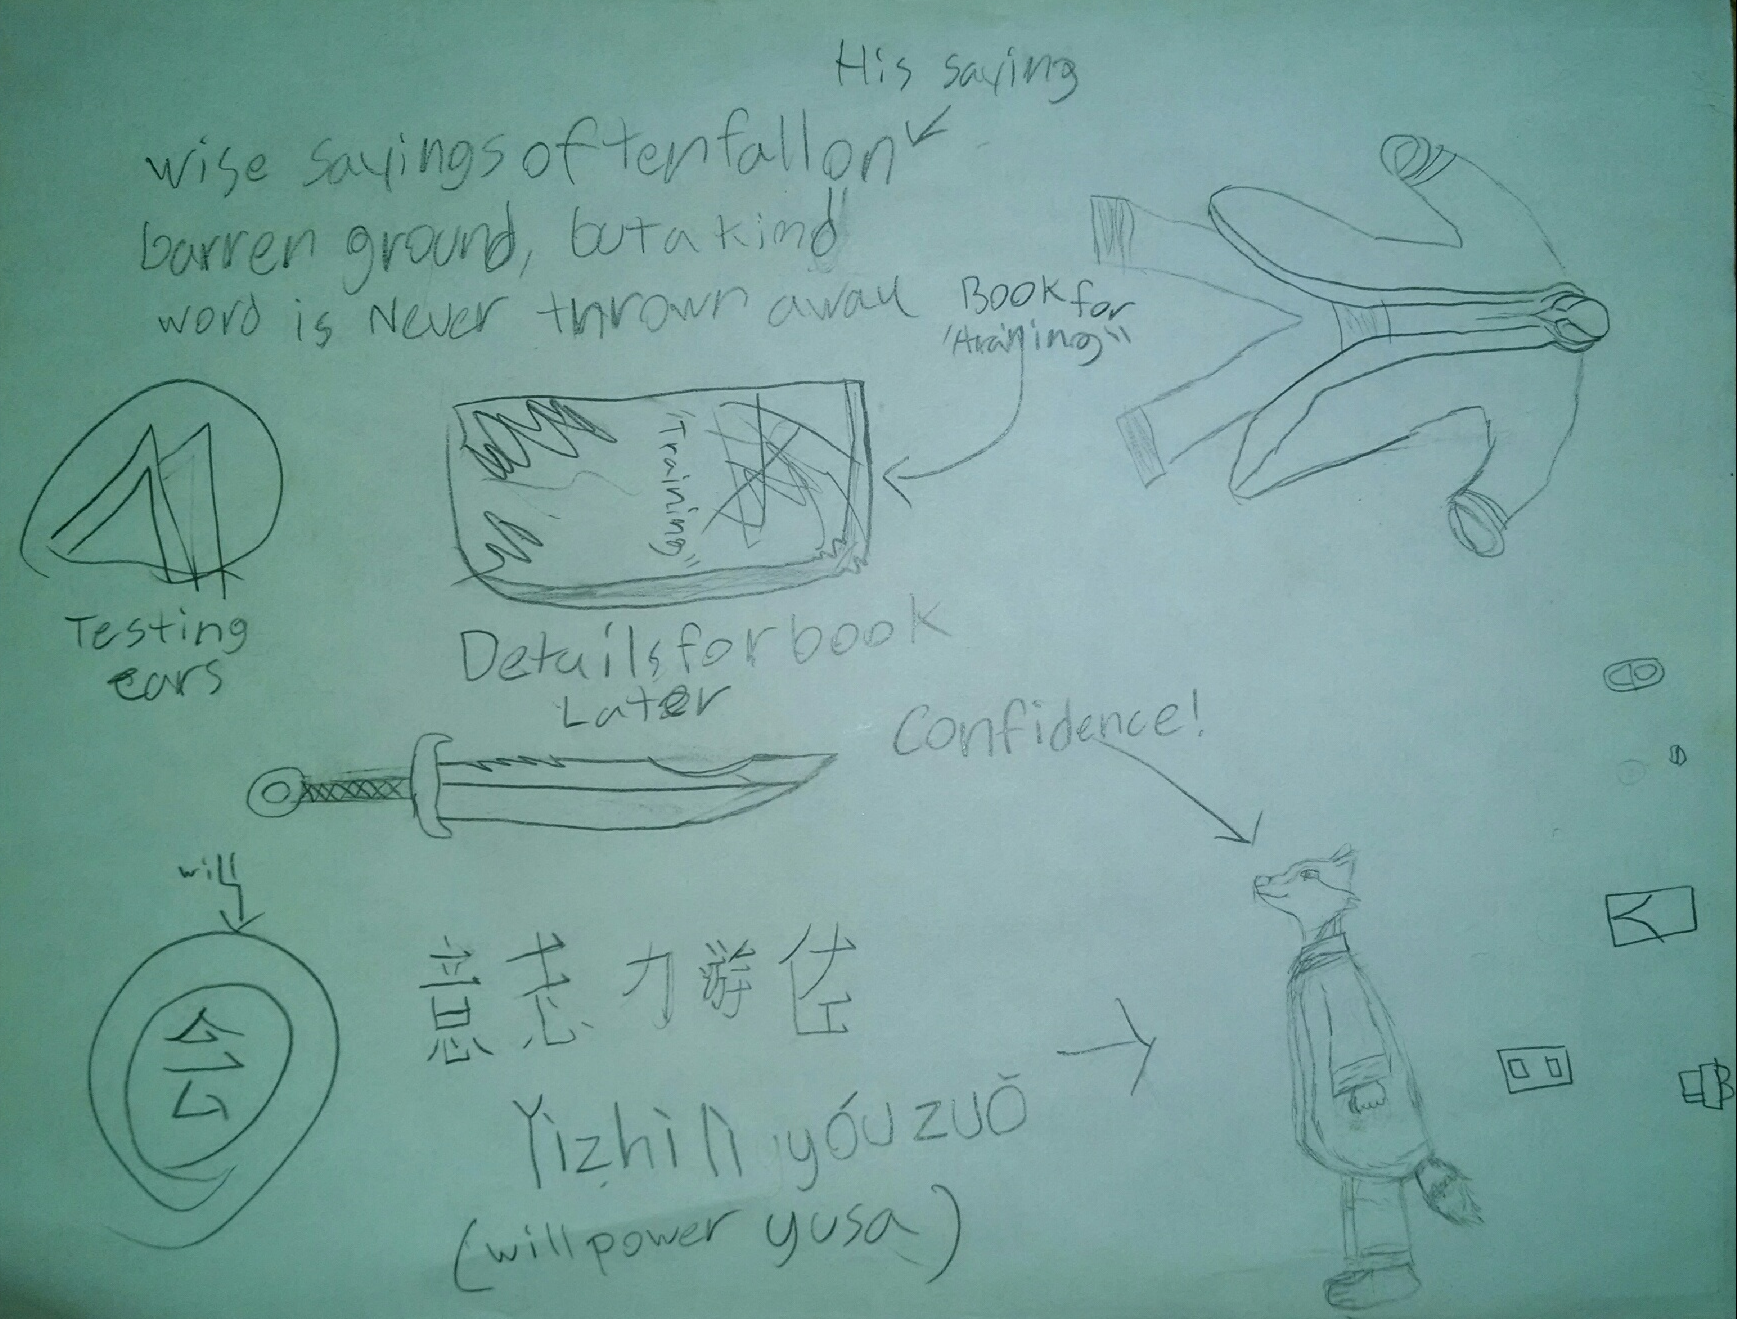 His saying
wise sayings often fall on
barren ground, but a kind
word is Never thrown away
Book for
"training"
"Training"
Testing
ears
Details for book
Later
Confidence!
will
会
意志力游佐
Yìzhìlì yóuzuǒ
(will power yusa)